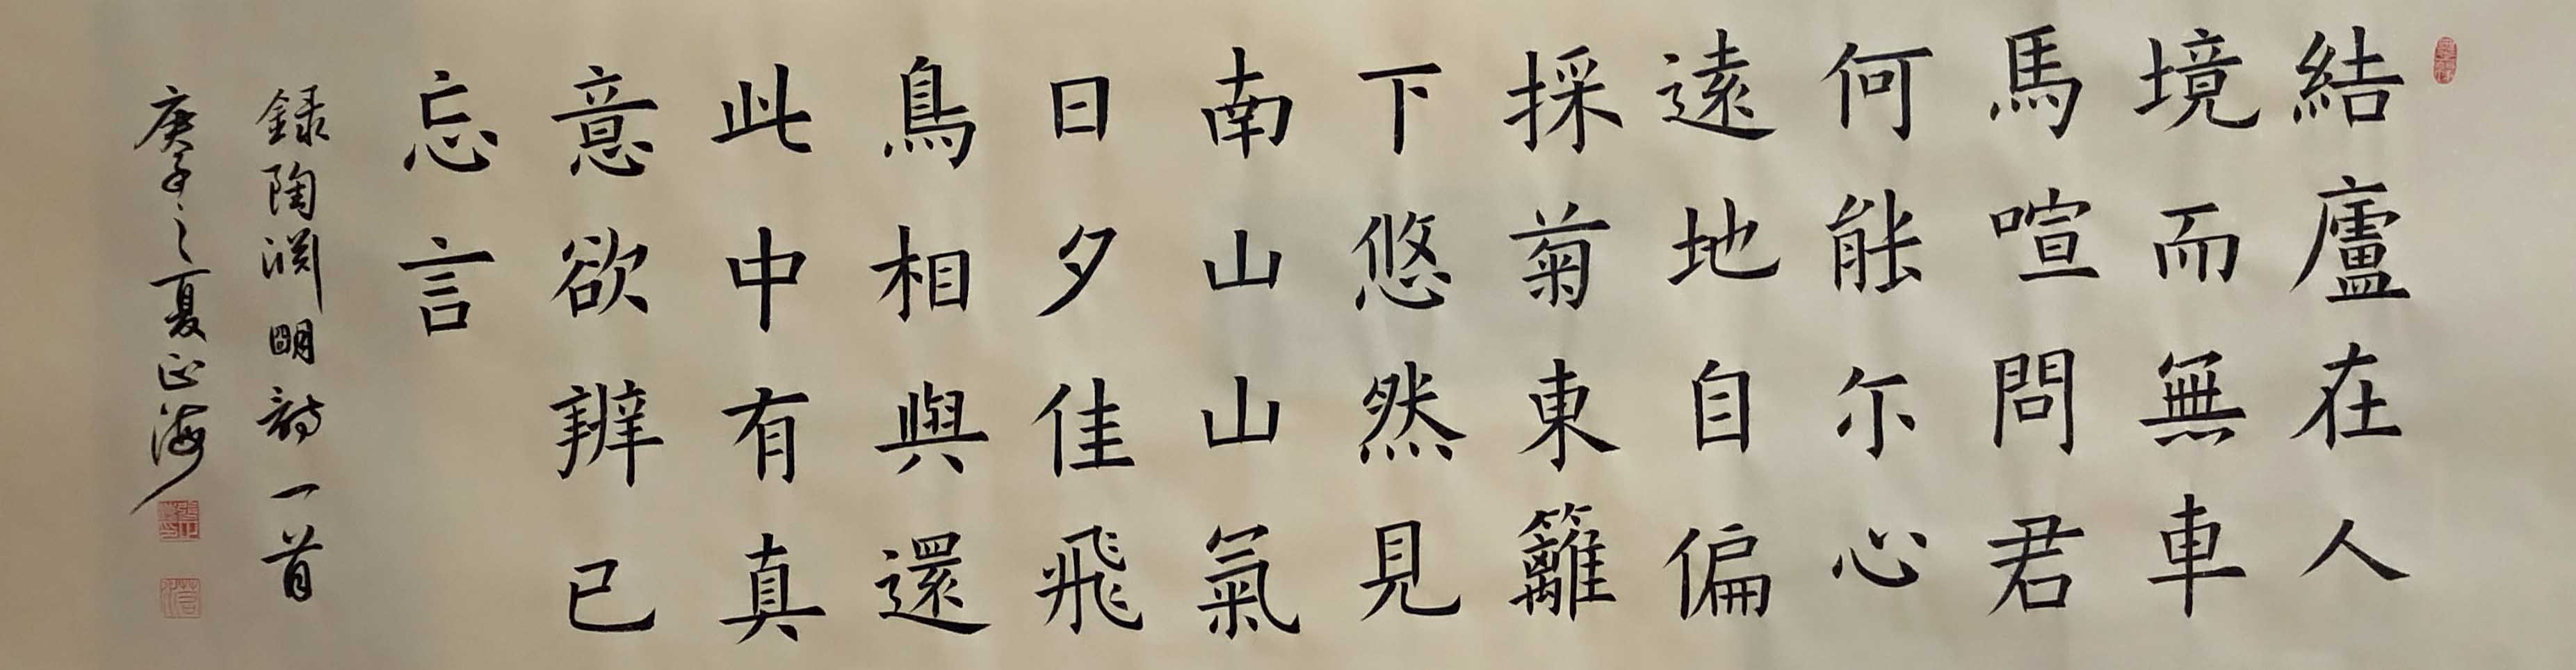 結廬在人
境而無車
馬喧問君
何能尓心
遠地自偏
採菊東籬
下悠然見
南山山氣
日夕佳飛
鳥相與還
此中有真
意欲辨已
忘言
録陶渊明詩一首
庚子之夏正海